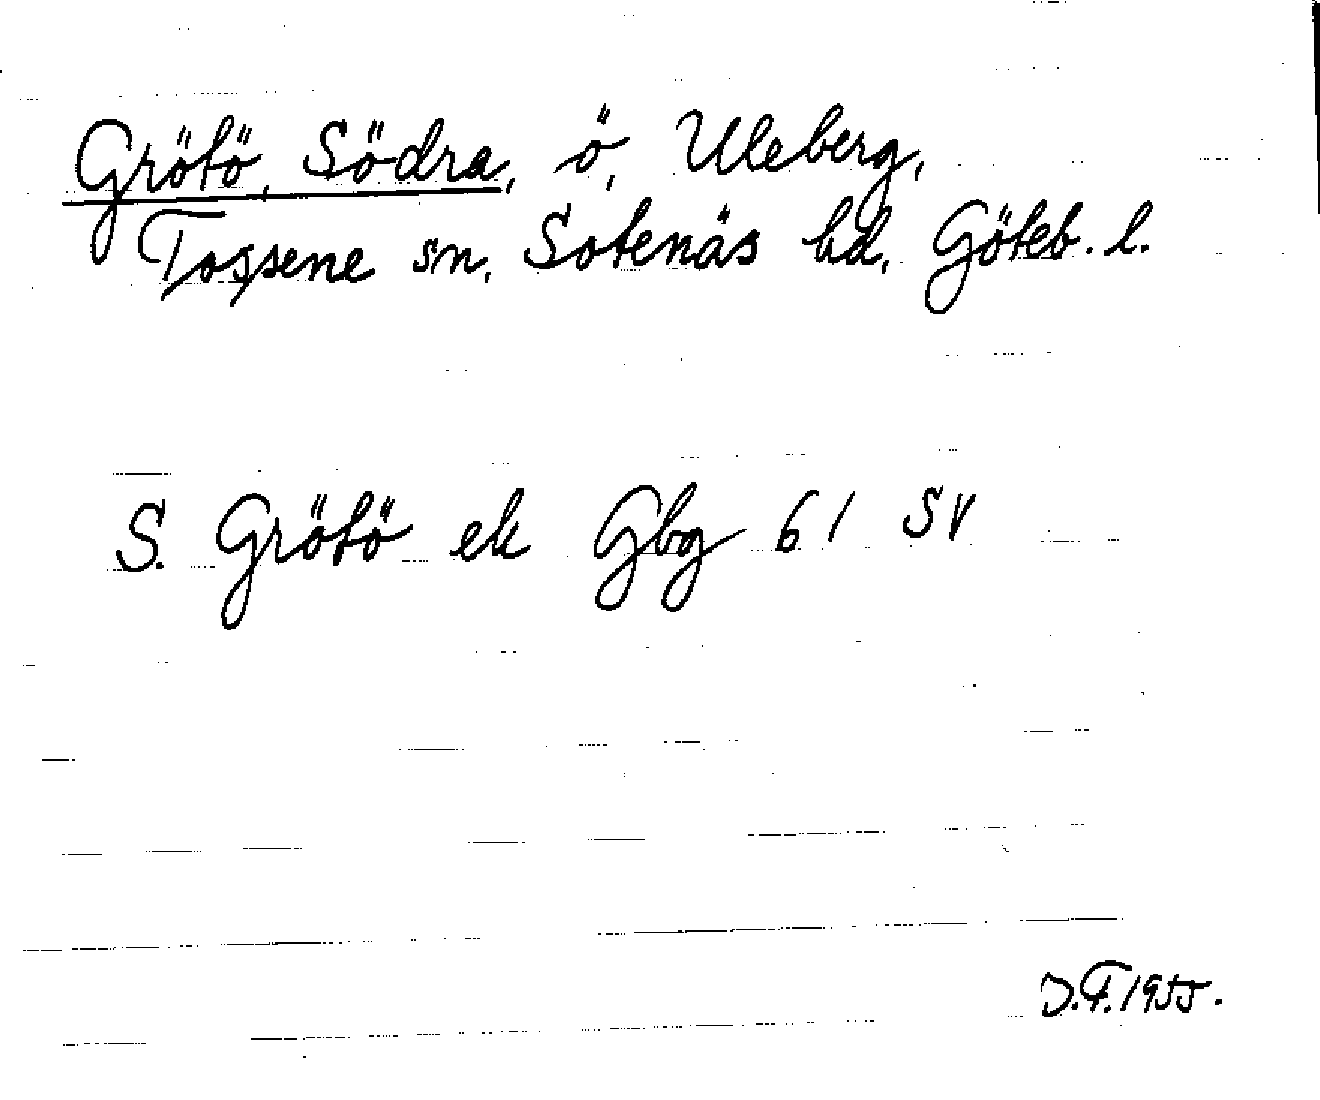 Grötö, Södra, ö, Uleberg,
Tossene sn, Sotenäs hd, Göteb. l.
S. Grötö ek Gbg 61 SV
D.F. 1955.